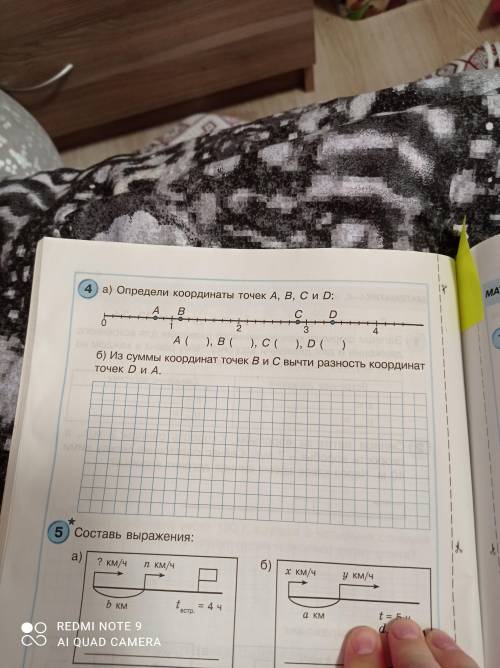 4 а) Определи координаты точек A, B, C и D:
A B C D
0 1 2 3 4
A ( ), B ( ), C ( ), D ( )
б) Из суммы координат точек B и C вычти разность координат
точек D и A.
5* Составь выражения:
а) ? км/ч n км/ч
b км tвстр. = 4 ч
б) x км/ч y км/ч
a км t = 5 ч
d
МА
REDMI NOTE 9
AI QUAD CAMERA